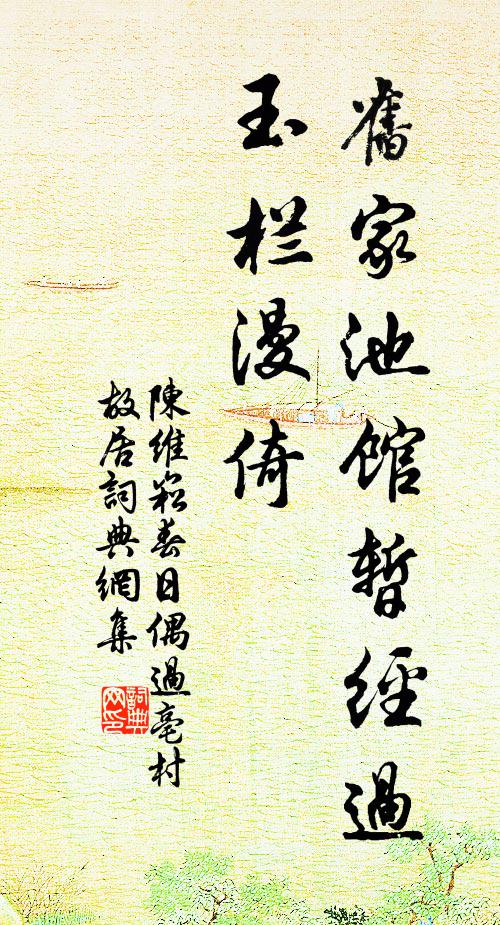 舊家池馆暫經過
玉栏漫倚
陳維崧春日偶過亳村
故居詞典網集
詞典
网印